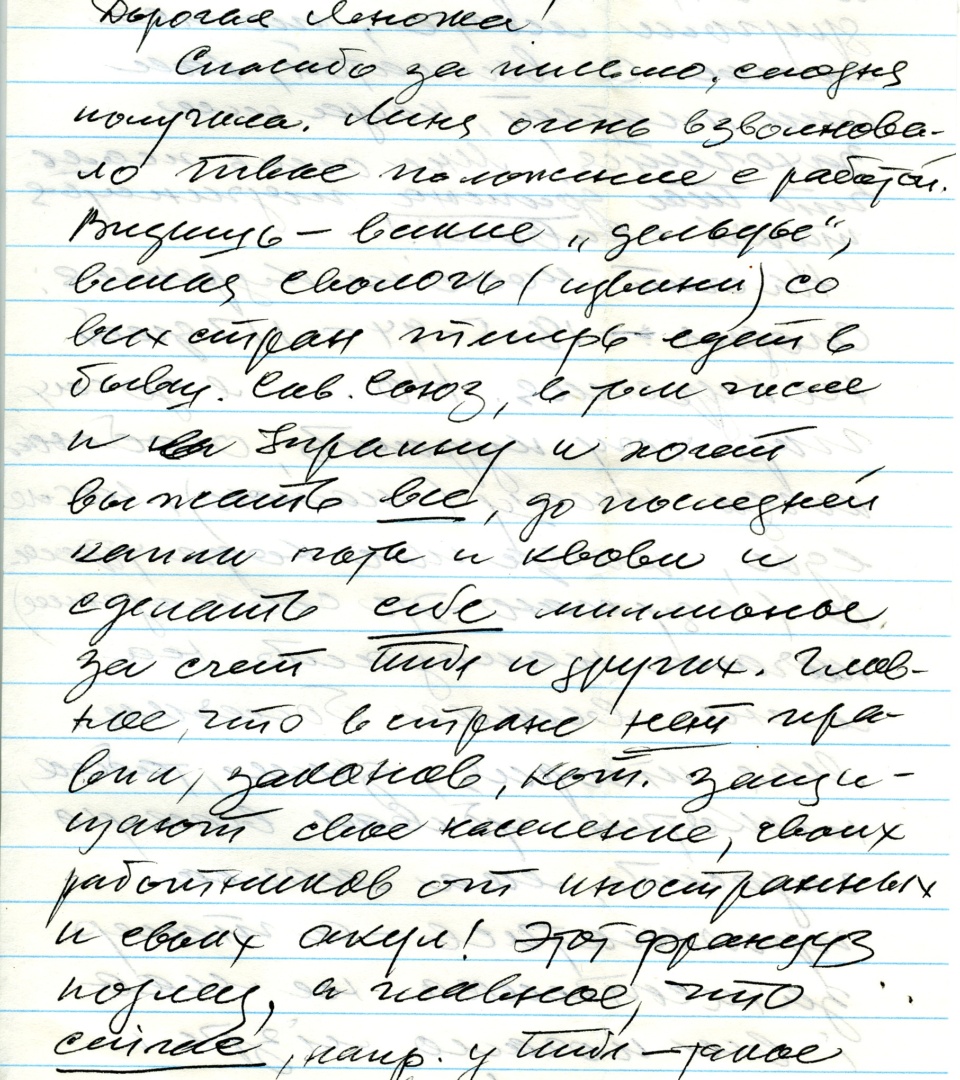 Дорогая Яножа!
Спасибо за письмо, сегодня
получила. Меня очень взволнова-
ло твое положение с работой.
Видишь – всякие „дельцы“,
всякая сволочь (извини) со
всех стран теперь едет в
бывш. Сов. Союз, в том числе
и на Украину и хотят
выжать все, до последней
капли пота и крови и
сделать себе миллионы
за счет тебя и других. Глав-
ное, что в стране нет пра-
вил, законов, кот. защи-
щают свое население, своих
работников от иностранных
и своих акул! Этот француз
подлец, а главное, что
сейчас, напр. у тебя – такое